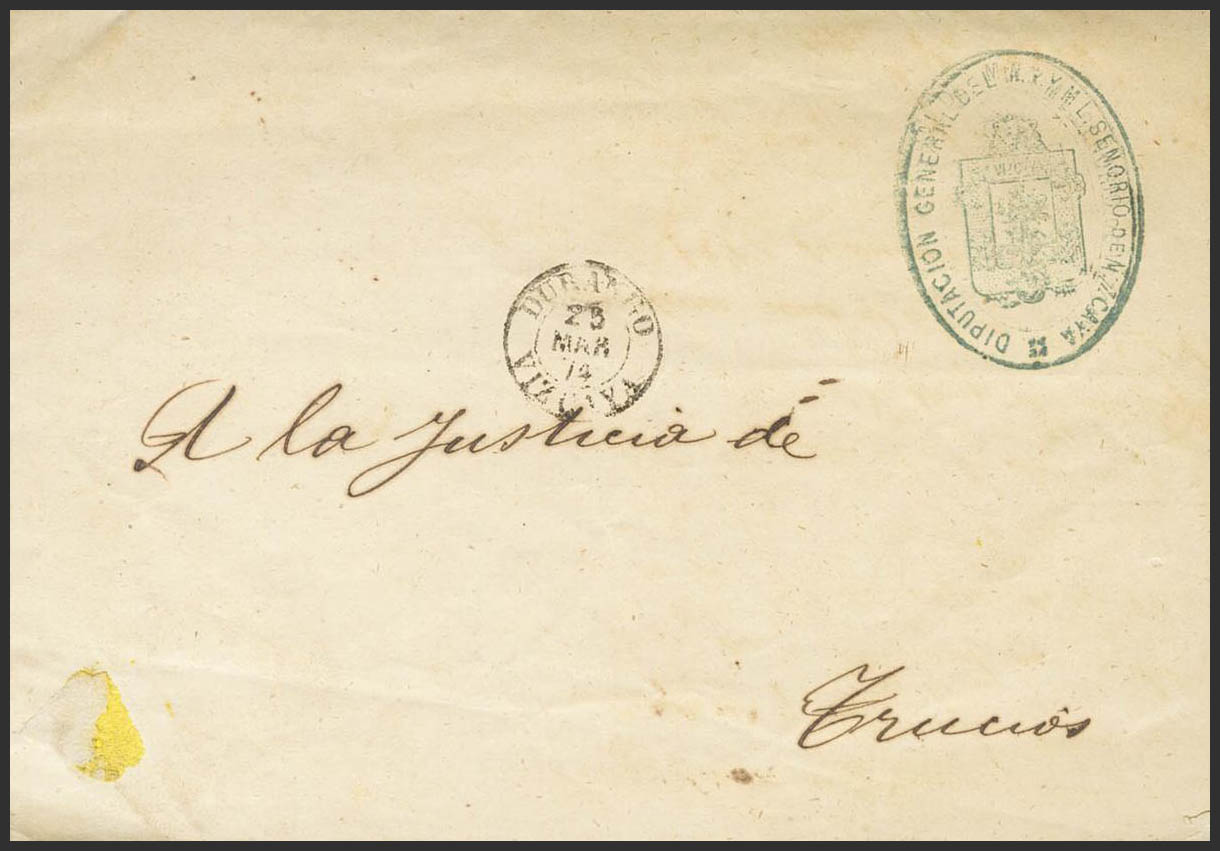 DIPUTACION GENERAL DEL M.N.Y M.L. SEÑORIO DE VIZCAYA
DURANGO
25
MAR
74
A la Justicia dé
Trucios